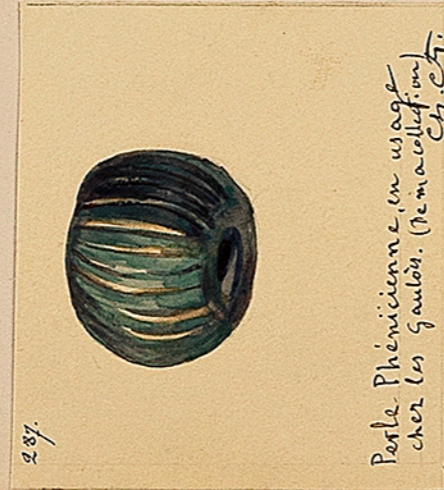 237.
Perle Phénicienne, en usage
chez les Gaulois. (De ma collection)
Ch. Ct.